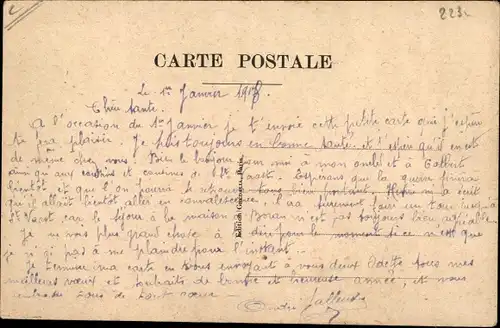 223
CARTE POSTALE
Le 1er Janvier 1918.
Chère tante.
A l'occasion du 1er Janvier je t'envoie cette petite carte qui j'espère
te fera plaisir. Je suis toujours en bonne santé et j'espère qu'il en est
de même chez vous. Bien le bonjour mon oncle et à
ainsi qu'aux cousins et cousines de St Vaast. Espérons que la guerre finira
bientôt et que l'on pourra se tous bien portant. Henri m'a écrit
qu'il allait bientôt aller en convalescence, il ira surement faire un tour jusqu'à
St Vaast car le séjour à la maison Boran n'est pas toujours bien agréable
Je ne vois plus grand chose à dire pour le moment si ce n'est que
je n'ai pas à me plaindre pour l'instant.
Je termine ma carte en vous envoyant à vous deux Odette tous mes
meilleurs vœux et souhaits de bonne et heureuse année, et nous
tous de tout cœur
André
Edition